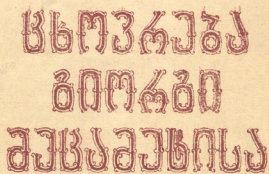 ცხოვრება
გიორგი
მეცამეტისა